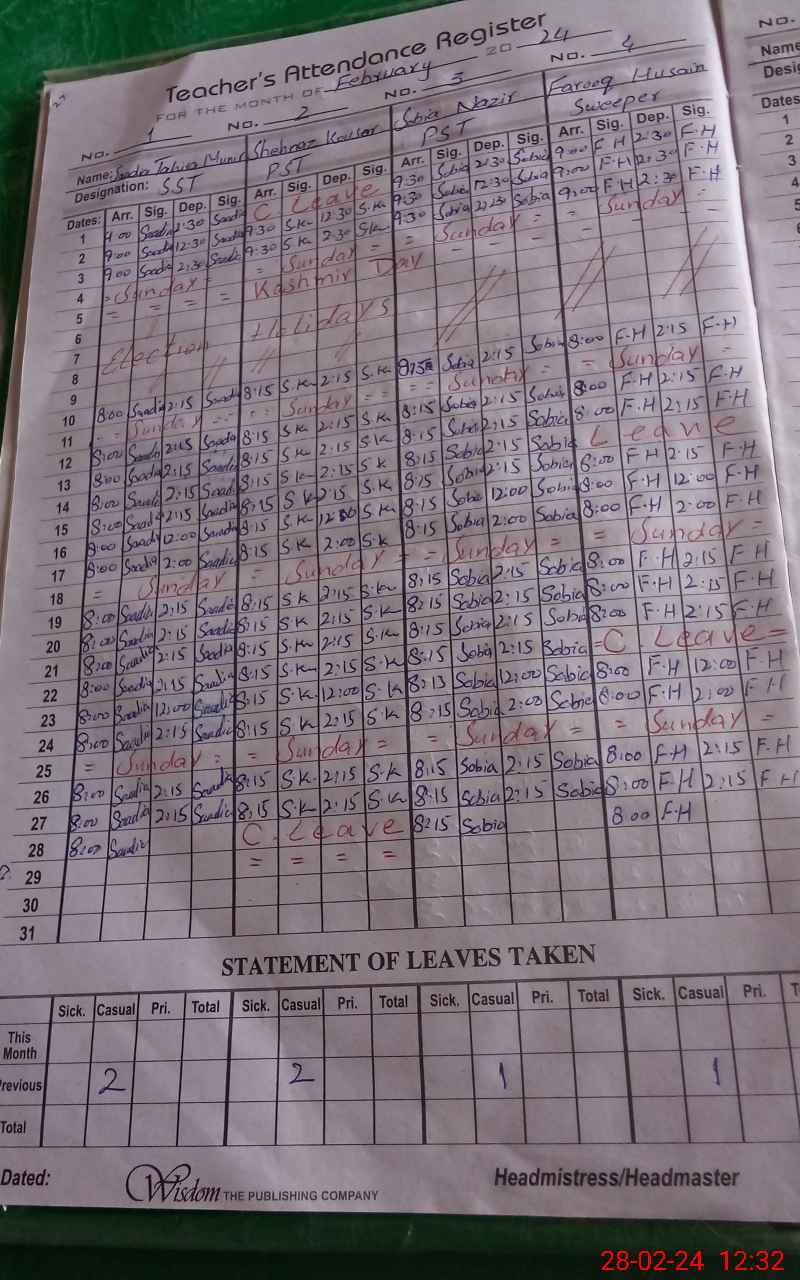 Teacher's Attendance Register
FOR THE MONTH OF February 20 24
No. 1 No. 2 No. 3 No. 4
Name: Saadia Tahira Munir Shehnaz Kousar Sobia Nazir Farooq Husain
Designation: SST PST PST Sweeper
Dates: Arr. Sig. Dep. Sig. Arr. Sig. Dep. Sig. Arr. Sig. Dep. Sig. Arr. Sig. Dep. Sig.
1 9:00 Saadia 2:30 Saadia C. Leave 9:30 Sobia 2:30 Sobia 9:00 F.H 2:30 F.H
2 9:00 Saadia 12:30 Saadia 9:30 S.K 12:30 S.K 9:30 Sobia 12:30 Sobia 9:00 F.H 2:30 F.H
3 9:00 Saadia 2:30 Saadia 9:30 S.K 2:30 S.K 9:30 Sobia 2:30 Sobia 9:00 F.H 2:30 F.H
4 = Sunday = = Sunday = = Sunday = = Sunday =
5 = = = = Kashmir Day - - - - - -
6
7 Election Holidays
8
9
10 8:00 Saadia 2:15 Saadia 8:15 S.K 2:15 S.K 8:15 Sobia 2:15 Sobia 8:00 F.H 2:15 F.H
11 = = Sunday = = = = Sunday = = = = Sunday = = = Sunday =
12 8:00 Saadia 2:15 Saadia 8:15 S.K 2:15 S.K 8:15 Sobia 2:15 Sobia 8:00 F.H 2:15 F.H
13 8:00 Saadia 2:15 Saadia 8:15 S.K 2:15 S.K 8:15 Sobia 2:15 Sobia 8:00 F.H 2:15 F.H
14 8:00 Saadia 2:15 Saadia 8:15 S.K 2:15 S.K 8:15 Sobia 2:15 Sobia Leave
15 8:00 Saadia 2:15 Saadia 8:15 S.K 2:15 S.K 8:15 Sobia 2:15 Sobia 8:00 F.H 2:15 F.H
16 8:00 Saadia 12:00 Saadia 8:15 S.K 12:00 S.K 8:15 Sobia 12:00 Sobia 8:00 F.H 12:00 F.H
17 8:00 Saadia 2:00 Saadia 8:15 S.K 2:00 S.K 8:15 Sobia 2:00 Sobia 8:00 F.H 2:00 F.H
18 = Sunday = Sunday = = Sunday = = Sunday =
19 8:00 Saadia 2:15 Saadia 8:15 S.K 2:15 S.K 8:15 Sobia 2:15 Sobia 8:00 F.H 2:15 F.H
20 8:00 Saadia 2:15 Saadia 8:15 S.K 2:15 S.K 8:15 Sobia 2:15 Sobia 8:00 F.H 2:15 F.H
21 8:00 Saadia 2:15 Saadia 8:15 S.K 2:15 S.K 8:15 Sobia 2:15 Sobia 8:00 F.H 2:15 F.H
22 8:00 Saadia 2:15 Saadia 8:15 S.K 2:15 S.K 8:15 Sobia 2:15 Sobia = C. Leave =
23 8:00 Saadia 12:00 Saadia 8:15 S.K 12:00 S.K 8:13 Sobia 12:00 Sobia 8:00 F.H 12:00 F.H
24 8:00 Saadia 2:15 Saadia 8:15 S.K 2:15 S.K 8:15 Sobia 2:00 Sobia 8:00 F.H 2:00 F.H
25 = Sunday = = Sunday = = Sunday = = Sunday =
26 8:00 Saadia 2:15 Saadia 8:15 S.K. 2:15 S.K 8:15 Sobia 2:15 Sobia 8:00 F.H 2:15 F.H
27 8:00 Saadia 2:15 Saadia 8:15 S.K 2:15 S.K 8:15 Sobia 2:15 Sobia 8:00 F.H 2:15 F.H
28 8:00 Saadia C. Leave 8:15 Sobia 8:00 F.H
29 = = = =
30
31
STATEMENT OF LEAVES TAKEN
Sick. Casual Pri. Total Sick. Casual Pri. Total Sick. Casual Pri. Total Sick. Casual Pri. T
This Month
Previous 2 2 1 1
Total
Dated: Wisdom THE PUBLISHING COMPANY Headmistress/Headmaster
No.
Name
Desig
Dates
1
2
3
4
5
28-02-24 12:32